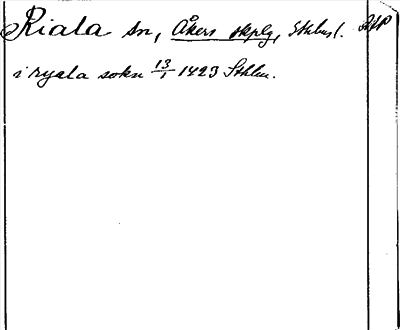 Riala sn, Åkers skplg, Sthlms l. SRAP
i ryala sokn 13/1 1423 Sthlm.